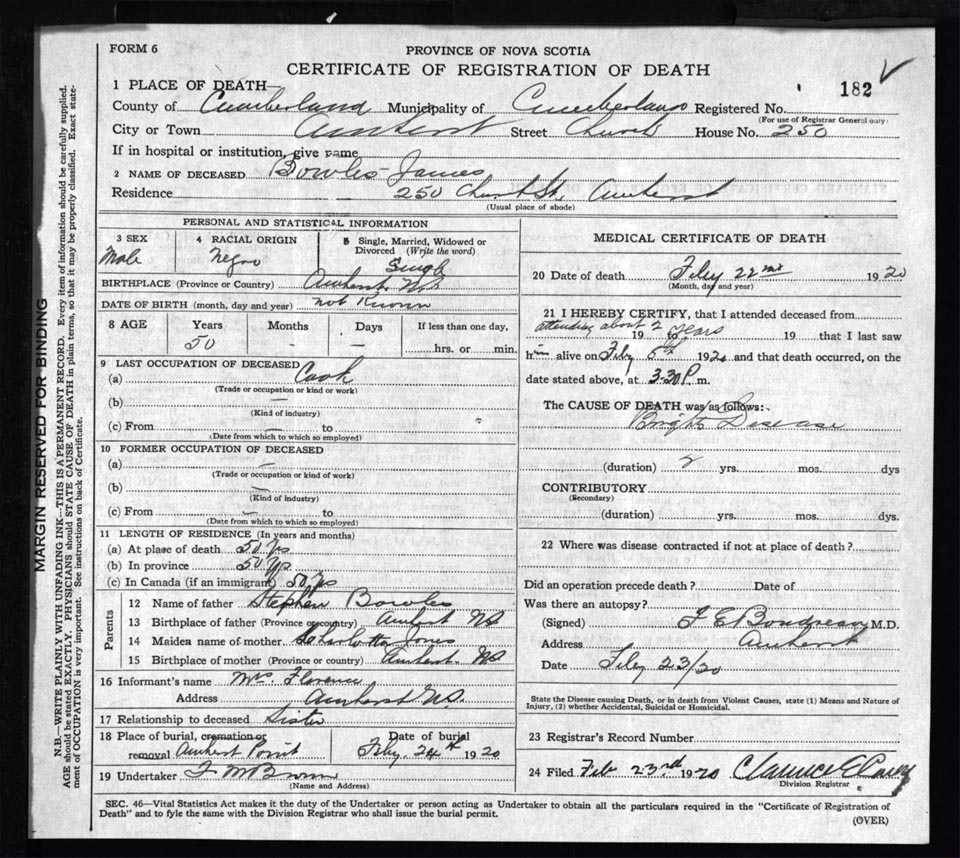 FORM 6
PROVINCE OF NOVA SCOTIA
CERTIFICATE OF REGISTRATION OF DEATH
182 ✓
1 PLACE OF DEATH—
County of Cumberland Municipality of Cumberland Registered No.
(For use of Registrar General only)
City or Town Amherst Street Church House No. 250
If in hospital or institution, give name
2 NAME OF DECEASED Bowles James
Residence 250 Church St. Amherst
(Usual place of abode)
PERSONAL AND STATISTICAL INFORMATION
3 SEX Male
4 RACIAL ORIGIN Negro
5 Single, Married, Widowed or Divorced (Write the word) Single
BIRTHPLACE (Province or Country) Amherst N.S
DATE OF BIRTH (month, day and year) not Known
8 AGE Years Months Days If less than one day,
50 — — hrs. or min.
9 LAST OCCUPATION OF DECEASED
(a) Cook
(Trade or occupation or kind or work)
(b) —
(Kind of industry)
(c) From — to
(Date from which to which so employed)
10 FORMER OCCUPATION OF DECEASED
(a) —
(Trade or occupation or kind of work)
(b) —
(Kind of industry)
(c) From — to
(Date from which to which so employed)
11 LENGTH OF RESIDENCE (In years and months)
(a) At place of death 50 Yrs
(b) In province 50 Yrs
(c) In Canada (if an immigrant) 50 Yrs
Parents
12 Name of father Stephen Bowles
13 Birthplace of father (Province or country) Amherst NS
14 Maiden name of mother Charlotte Jones
15 Birthplace of mother (Province or country) Amherst NS
16 Informant's name Mrs. Florence
Address Amherst N.S.
17 Relationship to deceased Sister
18 Place of burial, cremation or removal Amherst Point
Date of burial Feby 24th 1920
19 Undertaker
(Name and Address)
MEDICAL CERTIFICATE OF DEATH
20 Date of death Feby 22nd 1920
(Month, day and year)
21 I HEREBY CERTIFY, that I attended deceased from
attending about 2 years 19 to 19 that I last saw
him alive on Feby 5th 1920 and that death occurred, on the
date stated above, at 3.30 P. m.
The CAUSE OF DEATH was/as follows:
Brights Disease
(duration) 2 yrs. mos. dys
CONTRIBUTORY
(Secondary)
(duration) yrs. mos. dys.
22 Where was disease contracted if not at place of death?
Did an operation precede death? Date of
Was there an autopsy?
(Signed) F E Boudreau M.D.
Address Amherst
Date Feby 23/20
State the Disease causing Death, or in death from Violent Causes, state (1) Means and Nature of
Injury, (2) whether Accidental, Suicidal or Homicidal.
23 Registrar's Record Number
24 Filed Feb 23rd 1920 Clarence E
Division Registrar
SEC. 46—Vital Statistics Act makes it the duty of the Undertaker or person acting as Undertaker to obtain all the particulars required in the "Certificate of Registration of
Death" and to fyle the same with the Division Registrar who shall issue the burial permit.
(OVER)
MARGIN RESERVED FOR BINDING
N.B.—WRITE PLAINLY WITH UNFADING INK—THIS IS A PERMANENT RECORD. Every item of information should be carefully supplied.
AGE should be stated EXACTLY. PHYSICIANS should STATE CAUSE OF DEATH in plain terms, so that it may be properly classified. Exact state-
ment of OCCUPATION is very important. See instructions on back of Certificate.